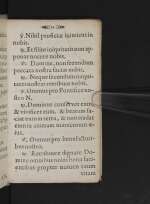 ℣. Nihil proficiat inimicus in
nobis.
℟. Et filius iniquitatis non ap
ponat nocere nobis.
℣. Domine, non secundum
peccata nostra facias nobis.
℟. Neque secundum iniquita
℣. Oremus pro Pontifice no-
stro N.
℟. Dominus conservet eum,
& vivificet eum, & beatum
faciat eum in terra, & non tradat
eum in animam inimicorum e-
ius.
℣. Oremus pro benefactori-
bus nostris.
℟. Retribuere dignare Do-
mine omnibus nobis bona faci-
entibus propter nomen tuum
vitam